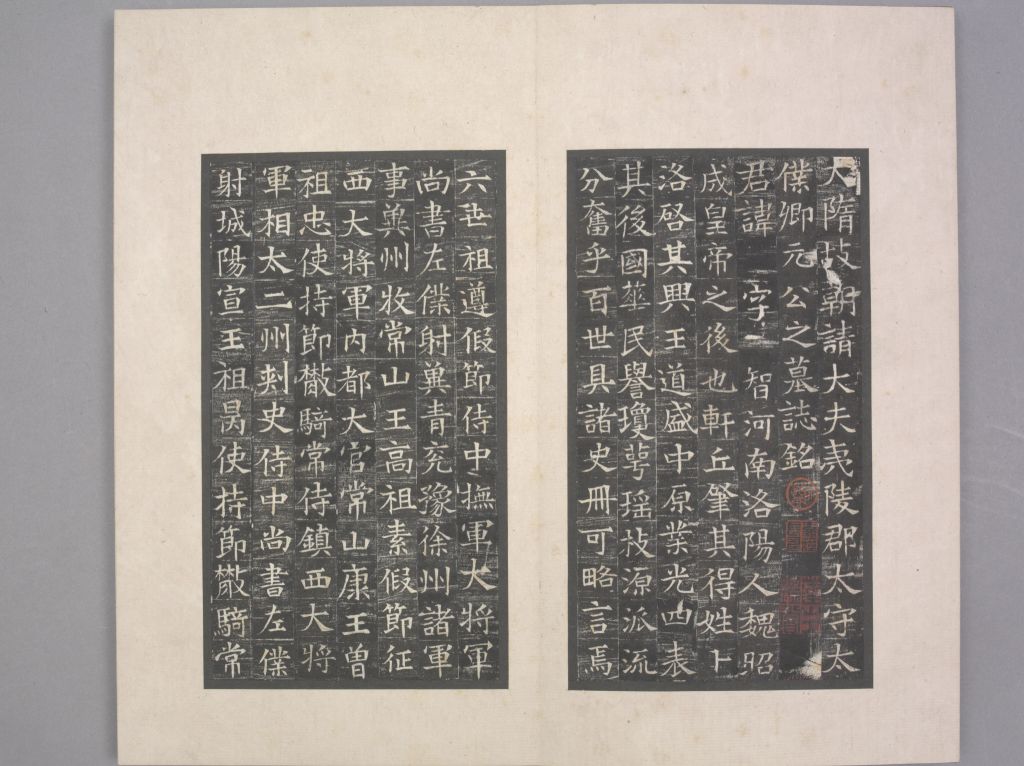 大隋故朝請大夫夷陵郡太守太
僕卿元公之墓誌銘
君諱　字　智河南洛陽人魏昭
成皇帝之後也軒丘肇其得姓卜
洛啓其興王道盛中原業光四表
其後國華民譽瓊萼瑤枝源派流
分奮乎百世具諸史冊可略言焉
六世祖遵假節侍中撫軍大將軍
尚書左僕射冀青兗豫徐州諸軍
事冀州牧常山王高祖素假節征
西大將軍內都大官常山康王曾
祖忠使持節散騎常侍鎮西大將
軍相太二州刺史侍中尚書左僕
射城陽宣王祖昺使持節散騎常